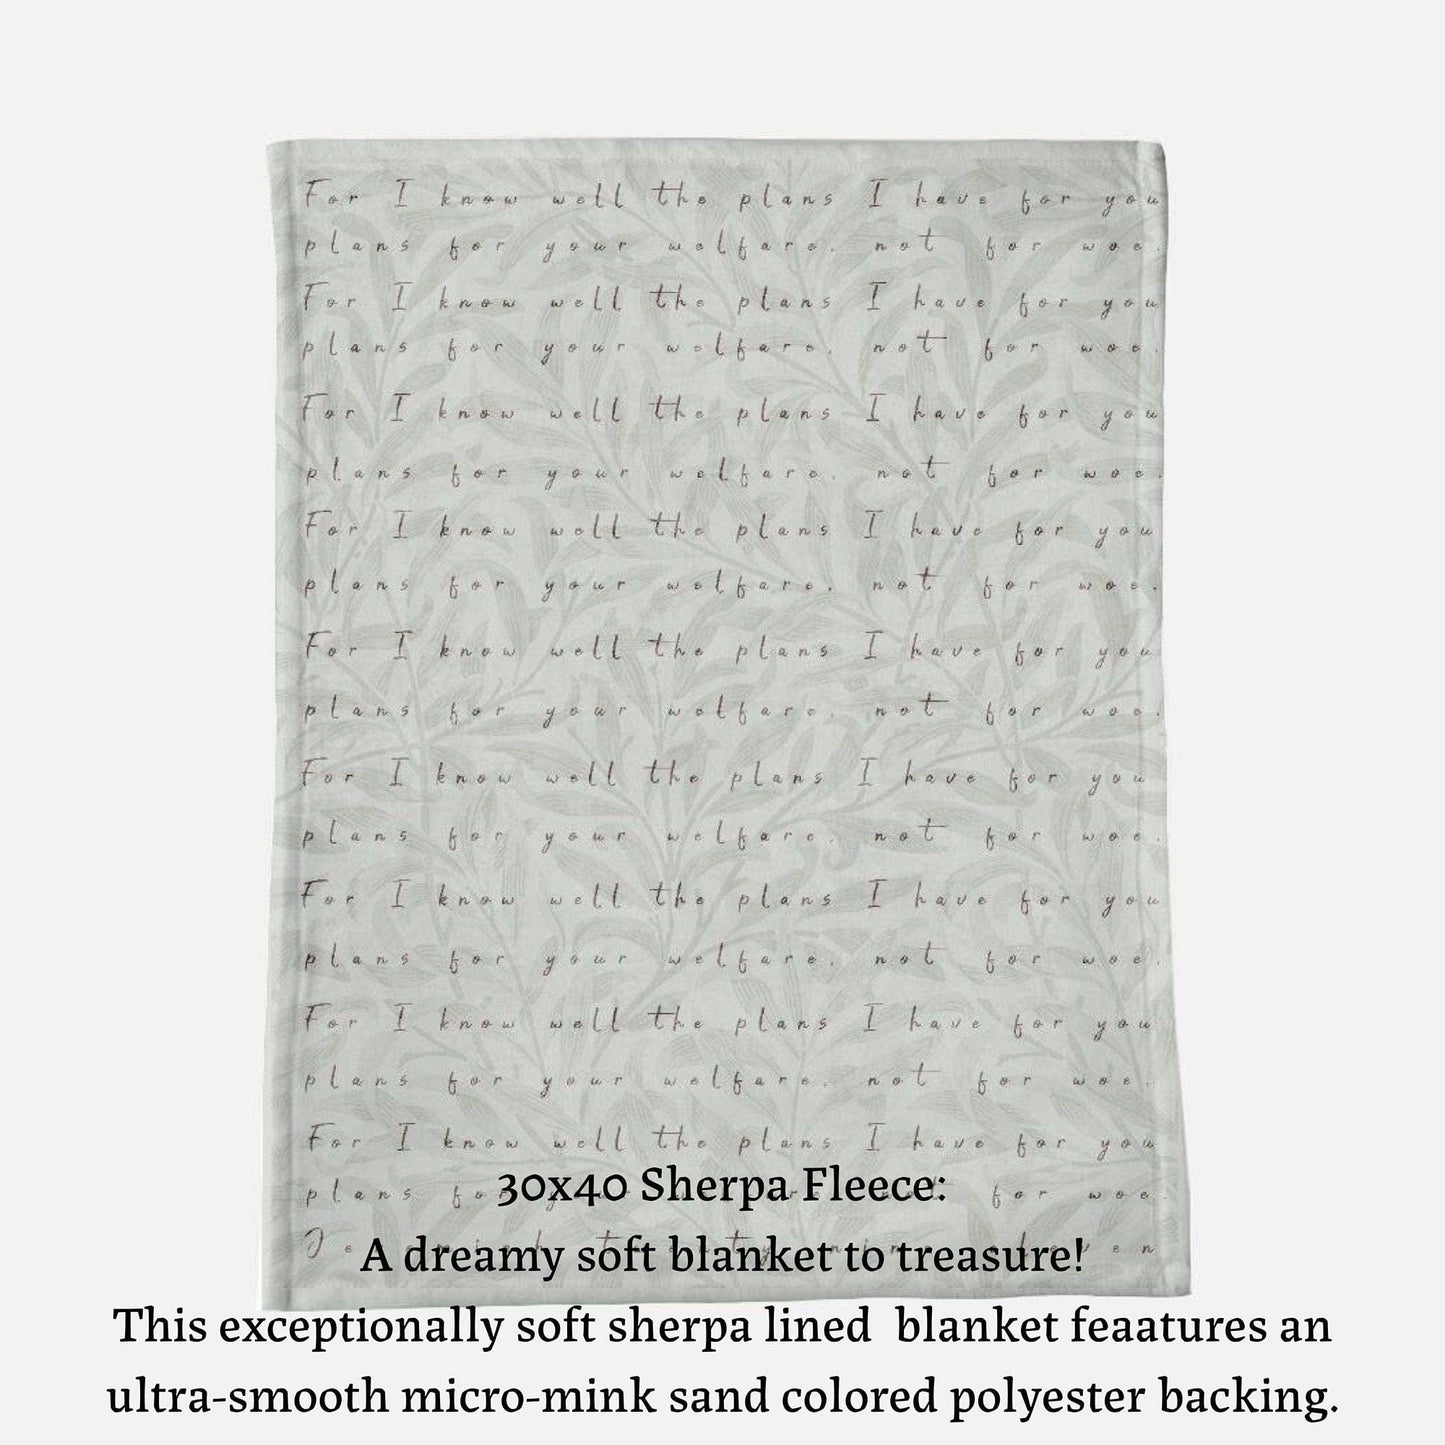 For I know well the plans I have for you
plans for your welfare. not for woe.
For I know well the plans I have for you
plans for your welfare. not for woe.
For I know well the plans I have for you
plans for your welfare. not for woe.
For I know well the plans I have for you
plans for your welfare. not for woe.
For I know well the plans I have for you
plans for your welfare. not for woe.
For I know well the plans I have for you
plans for your welfare. not for woe.
For I know well the plans I have for you
plans for your welfare. not for woe.
For I know well the plans I have for you
plans for your welfare. not for woe.
For I know well the plans I have for you
plans for woe.
30x40 Sherpa Fleece:
A dreamy soft blanket to treasure!
This exceptionally soft sherpa lined blanket feaatures an
ultra-smooth micro-mink sand colored polyester backing.